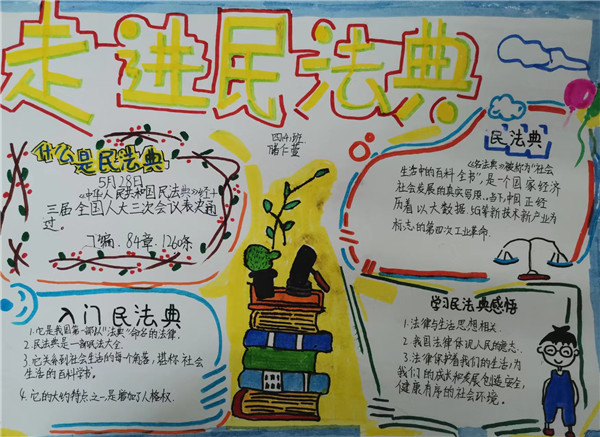 走进民法典
四(4)班
储仁萱
什么是民法典
5月28日
《中华人民共和国民法典》经十
三届全国人大三次会议表决通
过。
7编.84章.1260条
民法典
《民法典》被称为"社会
生活中的百科全书",是一个国家经济
社会发展的真实写照。当下,中国正经
历着以大数据、5G等新技术新产业为
标志的第四次工业革命.
入门民法典
1.它是我国第一部以"法典"命名的法律.
2.民法典是一部民法大全.
3.它关系到社会生活的每个角落,堪称社会
生活的百科学书。
4.它的大的特点之一,是增加了人格权.
学习民法典感悟
1.法律与生活思想相关.
2.我国法律体现人民的意志.
3.法律保护着我们的生活;为
我们的成长和发展创造安全,
健康有序的社会环境。